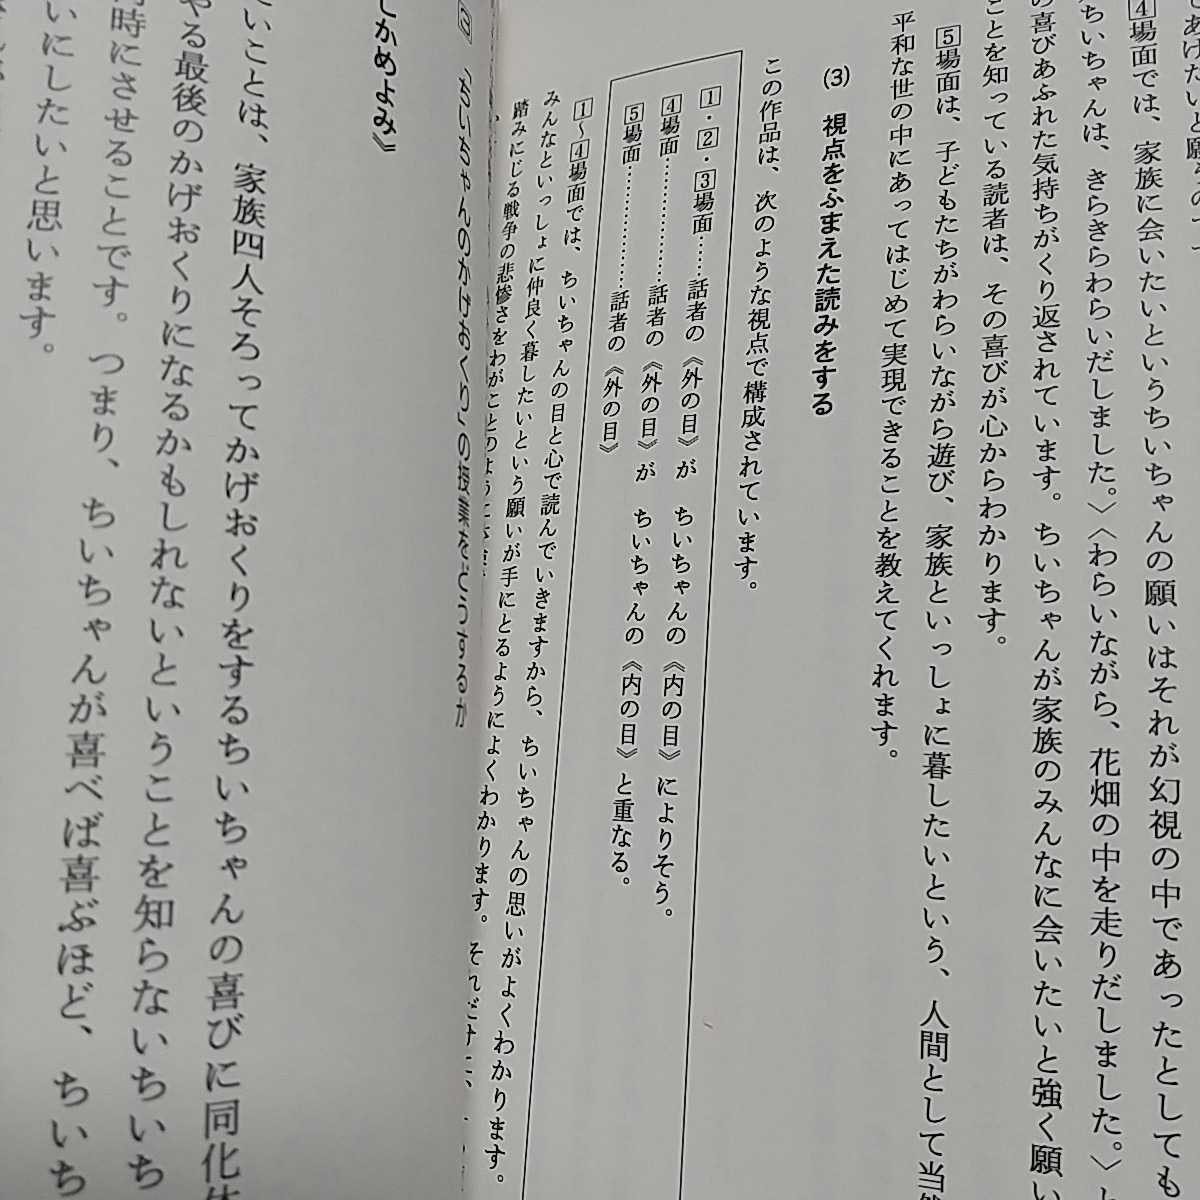 あげたいと願
4場面では、家族に会いたいというちいちゃんの願いはそれが幻視の中であったとしても
ちいちゃんは、きらきらわらいだしました。〉〈わらいながら、花畑の中を走りだしました。〉
の喜びあふれた気持ちがくり返されています。ちいちゃんが家族のみんなに会いたいと強く願い
ことを知っている読者は、その喜びが心からわかります。
5場面は、子どもたちがわらいながら遊び、家族といっしょに暮したいという、人間として当然
平和な世の中にあってはじめて実現できることを教えてくれます。
(3) 視点をふまえた読みをする
この作品は、次のような視点で構成されています。
1・2・3場面……話者の《外の目》が ちいちゃんの《内の目》によりそう。
4場面……………話者の《外の目》が ちいちゃんの《内の目》と重なる。
5場面……………話者の《外の目》
1〜4場面では、ちいちゃんの目と心で読んでいきますから、ちいちゃんの思いがよくわかります。
みんなといっしょに仲良く暮したいという願いが手にとるようによくわかります。それだけに、
踏みにじる戦争の悲惨さをわがことのように
3 「ちいちゃんのかげおくり」の授業をどうするか
しかめよみ》
いことは、家族四人そろってかげおくりをするちいちゃんの喜びに同化
やる最後のかげおくりになるかもしれないということを知らないちいち
時にさせることです。つまり、ちいちゃんが喜べば喜ぶほど、ちいち
いにしたいと思います。